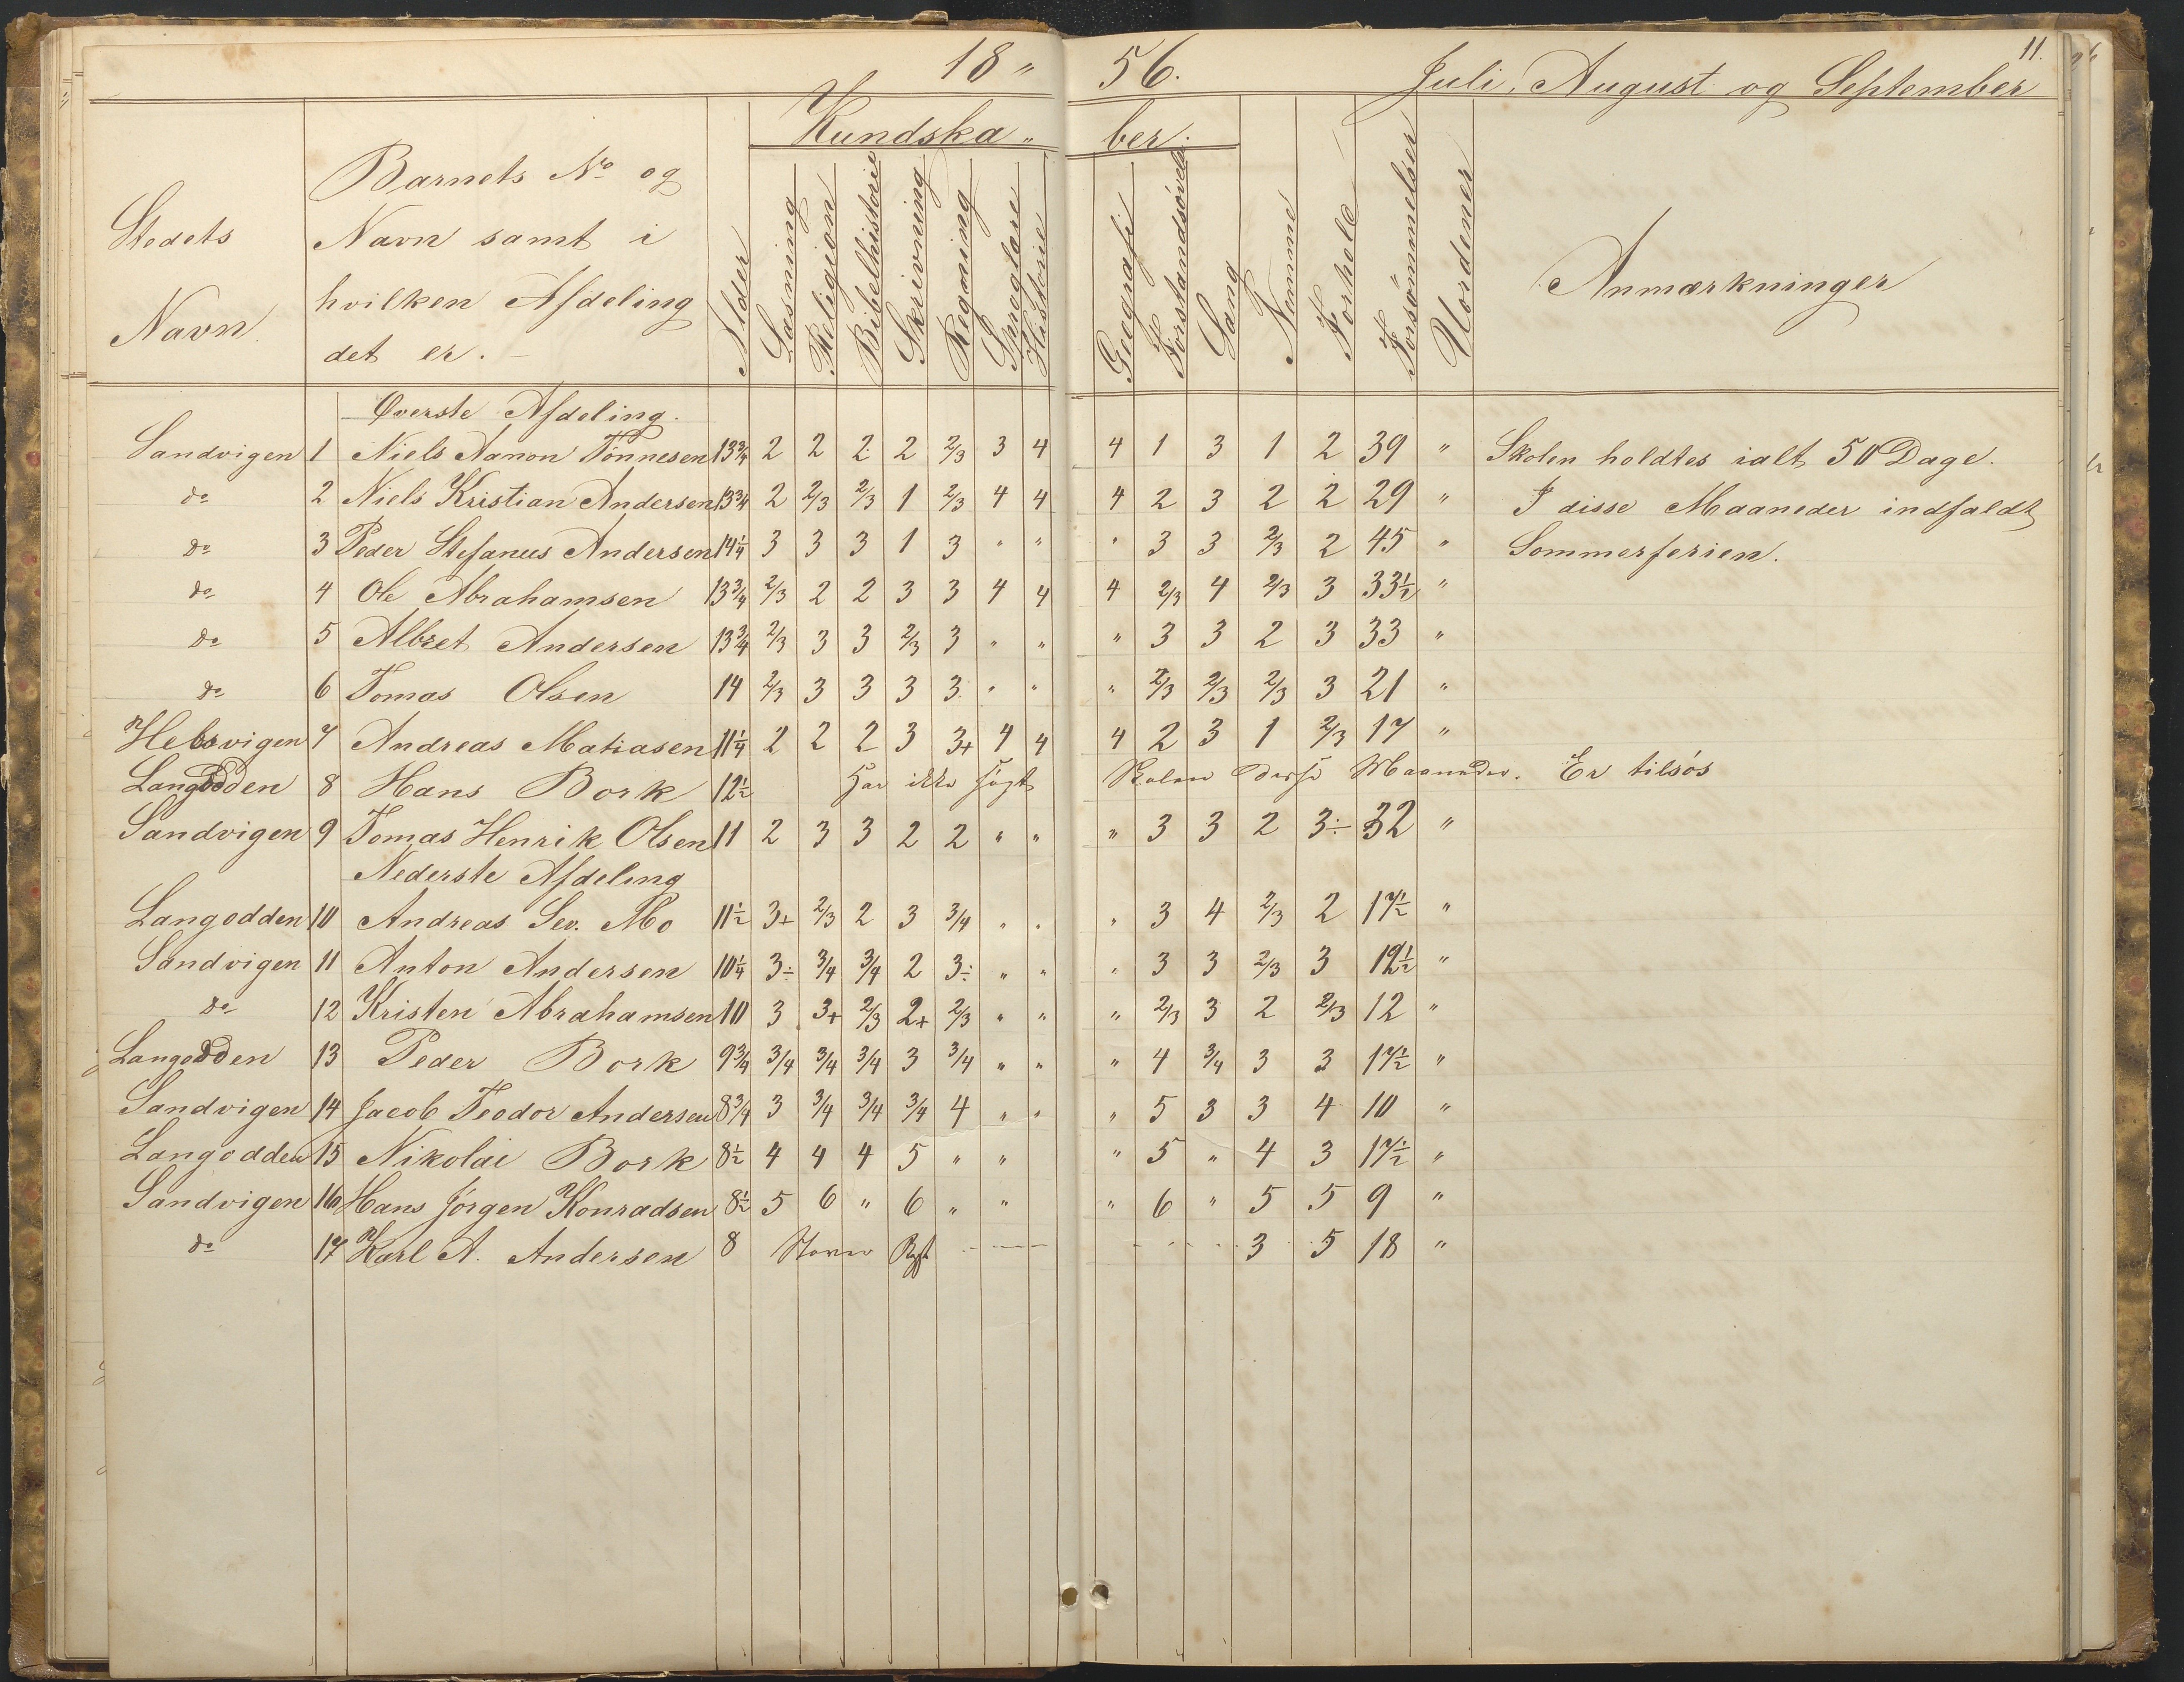 18 " 56. Juli, August og September 11.
Kundska " ber.
Stedets Navn.
Barnets No og Navn samt i hvilken Afdeling det er. –
Alder Læsning Religion Bibelhistorie Skrivning Regning Sproglære Historie Geografi Forstandsøvels. Sang Nemme Forhold Forsømmelser Uordener Anmærkninger
Øverste Afdeling.
Sandvigen 1 Niels Aanon Tønnesen 13¾ 2 2 2 2 2/3 3 4 4 1 3 1 2 39 " Skolen holdtes ialt 50 Dage.
do 2 Niels Kristian Andersen 13¾ 2 2/3 2/3 1 2/3 4 4 4 2 3 2 2 29 " I disse Maaneder indfaldt
do 3 Peder Stefanus Andersen 14¼ 3 3 3 1 3 " " " 3 3 2/3 2 45 " Sommerferien.
do 4 Ole Abrahamsen 13¾ 2/3 2 2 3 3 4 4 4 2/3 4 2/3 3 33½ "
do 5 Albret Andersen 13¾ 2/3 3 3 2/3 3 " " " 3 3 2 3 33 "
do 6 Tomas Olsen 14 2/3 3 3 3 3 " " " 2/3 2/3 2/3 3 21 "
Hebsvigen 7 Andreas Matiasen 11¼ 2 2 2 3 3+ 4 4 4 2 3 1 2/3 17 "
Langodden 8 Hans Bork 12½ Har ikke søgt Skolen disse Maaneder. Er tilsøs
Sandvigen 9 Tomas Henrik Olsen 11 2 3 3 2 2 " " " 3 3 2 3÷ 32 "
Nederste Afdeling
Langodden 10 Andreas Sev. Mo 11½ 3+ 2/3 2 3 3/4 " " " 3 4 2/3 2 17½ "
Sandvigen 11 Anton Andersen 10¼ 3÷ 3/4 3/4 2 3÷ " " " 3 3 2/3 3 12½ "
do 12 Kristen Abrahamsen 10 3 3+ 2/3 2+ 2/3 " " " 2/3 3 2 2/3 12 "
Langodden 13 Peder Bork 9¾ 3/4 3/4 3/4 3 3/4 " " " 4 3/4 3 3 17½ "
Sandvigen 14 Jacob Teodor Andersen 8¾ 3 3/4 3/4 3/4 4 " " " 5 3 3 4 10 "
Langodden 15 Nikolai Bork 8½ 4 4 4 5 " " " 5 " 4 3 17½ "
Sandvigen 16 Hans Jörgen Konradsen 8½ 5 6 " 6 " " " 6 " 5 5 9 "
do 17 Karl A. Andersen 8 3 5 18 "